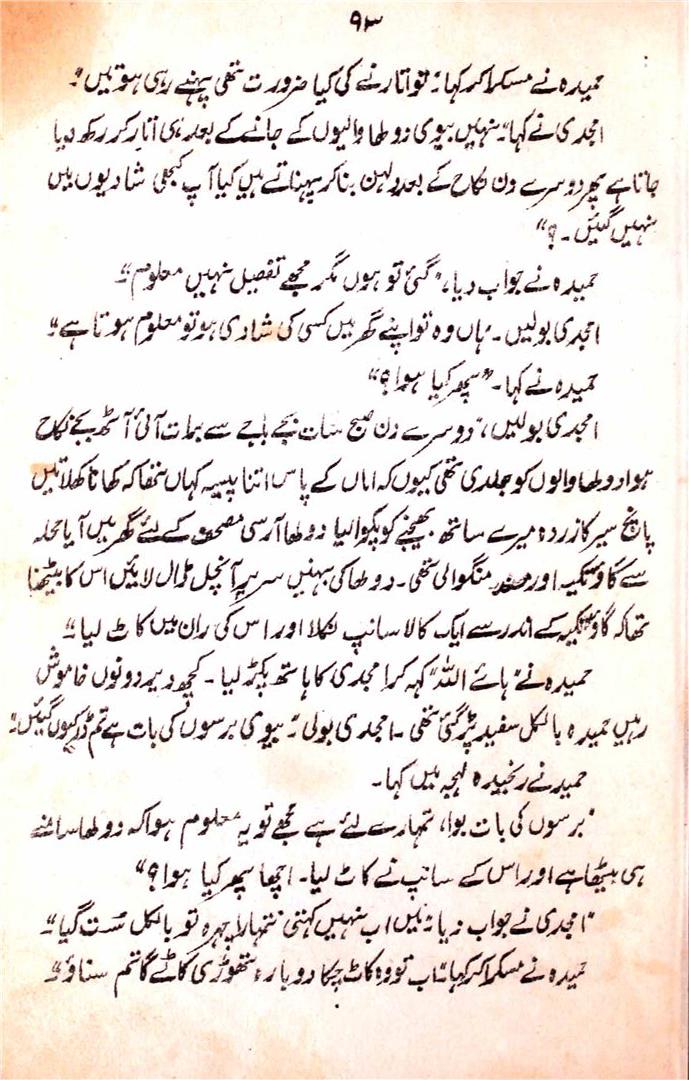 ۹۳
حمیدہ نے مسکرا کر کہا۔ تو اتارنے کی کیا ضرورت تھی پہنے رہی ہوتیں"۔
امجدی نے کہا "نہیں بیوی دولھا والیوں کے جانے کے بعد ہی اتار کر رکھ دیا
جاتا ہے پھر دوسرے دن نکاح کے بعد دلہن بنا کر پہناتے ہیں کیا آپ کبھی شادیوں میں
نہیں گئیں۔؟"
حمیدہ نے جواب دیا،" گئی تو ہوں مگر مجھے تفصیل نہیں معلوم"۔
امجدی بولیں۔ ہاں وہ تو اپنے گھر میں کسی کی شادی ہو تو معلوم ہوتا ہے"۔
حمیدہ نے کہا۔ "پھر کیا ہوا؟"
امجدی بولیں، "دوسرے دن صبح سات بجے باجے سے برات آئی آٹھ بجے نکاح
ہوا دولھا والوں کو جلدی تھی کیوں کہ اماں کے پاس اتنا پیسہ کہاں تھا کہ کھانا کھلاتیں
پانچ سیر کا زردہ میرے ساتھ بھیجنے کو پکوا لیا دولھا آرسی مصحف کے لئے گھر میں آیا محلہ
سے گاؤ تکیہ اور مسند منگوالی تھی۔ دولھا کی بہنیں سر پر آنچل ڈال لائیں اس کا بیٹھنا
تھا کہ گاؤ تکیہ کے اندر سے ایک کالا سانپ نکلا اور اس کی ران میں کاٹ لیا"۔
حمیدہ نے "ہائے اللہ" کہہ کر امجدی کا ہاتھ پکڑ لیا۔ کچھ دیر دونوں خاموش
رہیں حمیدہ بالکل سفید پڑ گئی تھی۔ امجدی بولی "بیوی برسوں کی بات ہے تم ڈر کیوں گئیں"۔
حمید نے رنجیدہ لہجہ میں کہا۔
"برسوں کی بات بوا، تمہارے لئے ہے مجھے تو یہ معلوم ہوا کہ دولھا سامنے
ہی بیٹھا ہے اور اس کے سانپ نے کاٹ لیا۔ اچھا پھر کیا ہوا؟"
"امجدی نے جواب دیا "میں اب نہیں کہتی تمہارا چہرہ تو بالکل ست گیا"۔
حمیدہ نے مسکرا کر کہا "اب تو وہ کاٹ چکا دوبارہ تھوڑی کاٹے گا تم سناؤ"۔